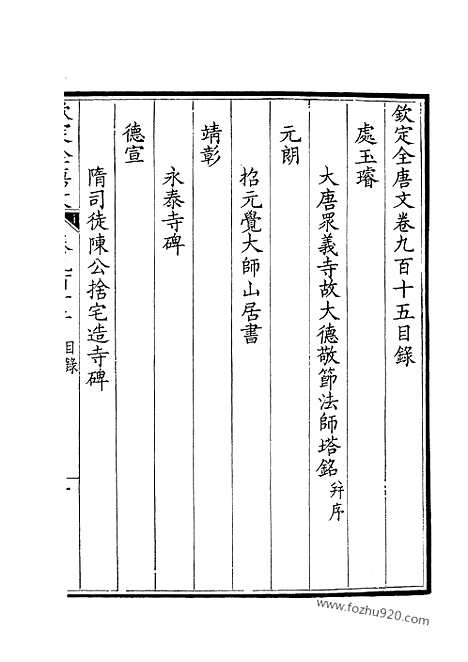 欽定全唐文卷九百十五目錄
處玉璿
大唐眾義寺故大德敬節法師塔銘并序
元朗
招元覺大師山居書
靖彰
永泰寺碑
德宣
隋司徒陳公捨宅造寺碑
目錄
www.fozhu920.com